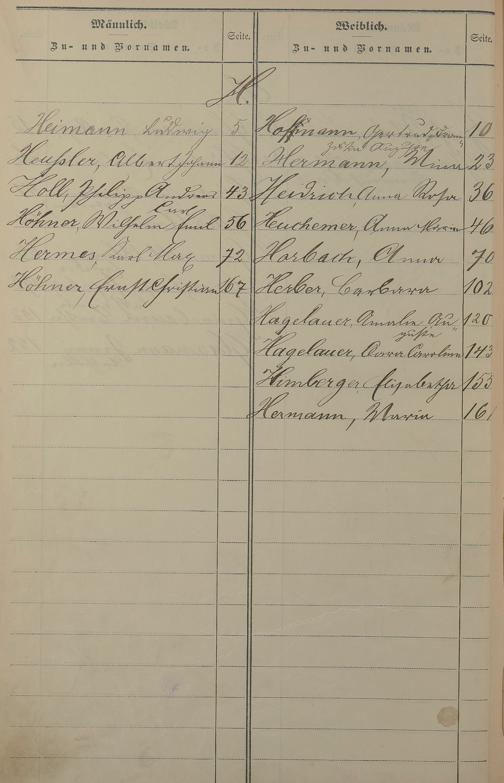 Männlich.
Zu- und Vornamen.
Seite.
Weiblich.
Zu- und Vornamen.
Seite.
H.
Heimann Ludwig 5
Heußler, Albert Johann 12
Holl, Philipp Andreas 43
Carl
Höhner, Wilhelm Emil 56
Hermes, Karl Max 72
Höhner, Ernst Christian 67
Hoffmann, Gertrud 10
Auguste
Hermann, Mina 23
Heidrich, Anna Rosa 36
Heuchemer, Anna Maria 46
Horbach, Anna 70
Herber, Barbara 102
Hagelauer, Amalie Au- 120
guste
Hagelauer, Clara Caroline 143
Himberger, Elisabetha 155
Hermann, Maria 161